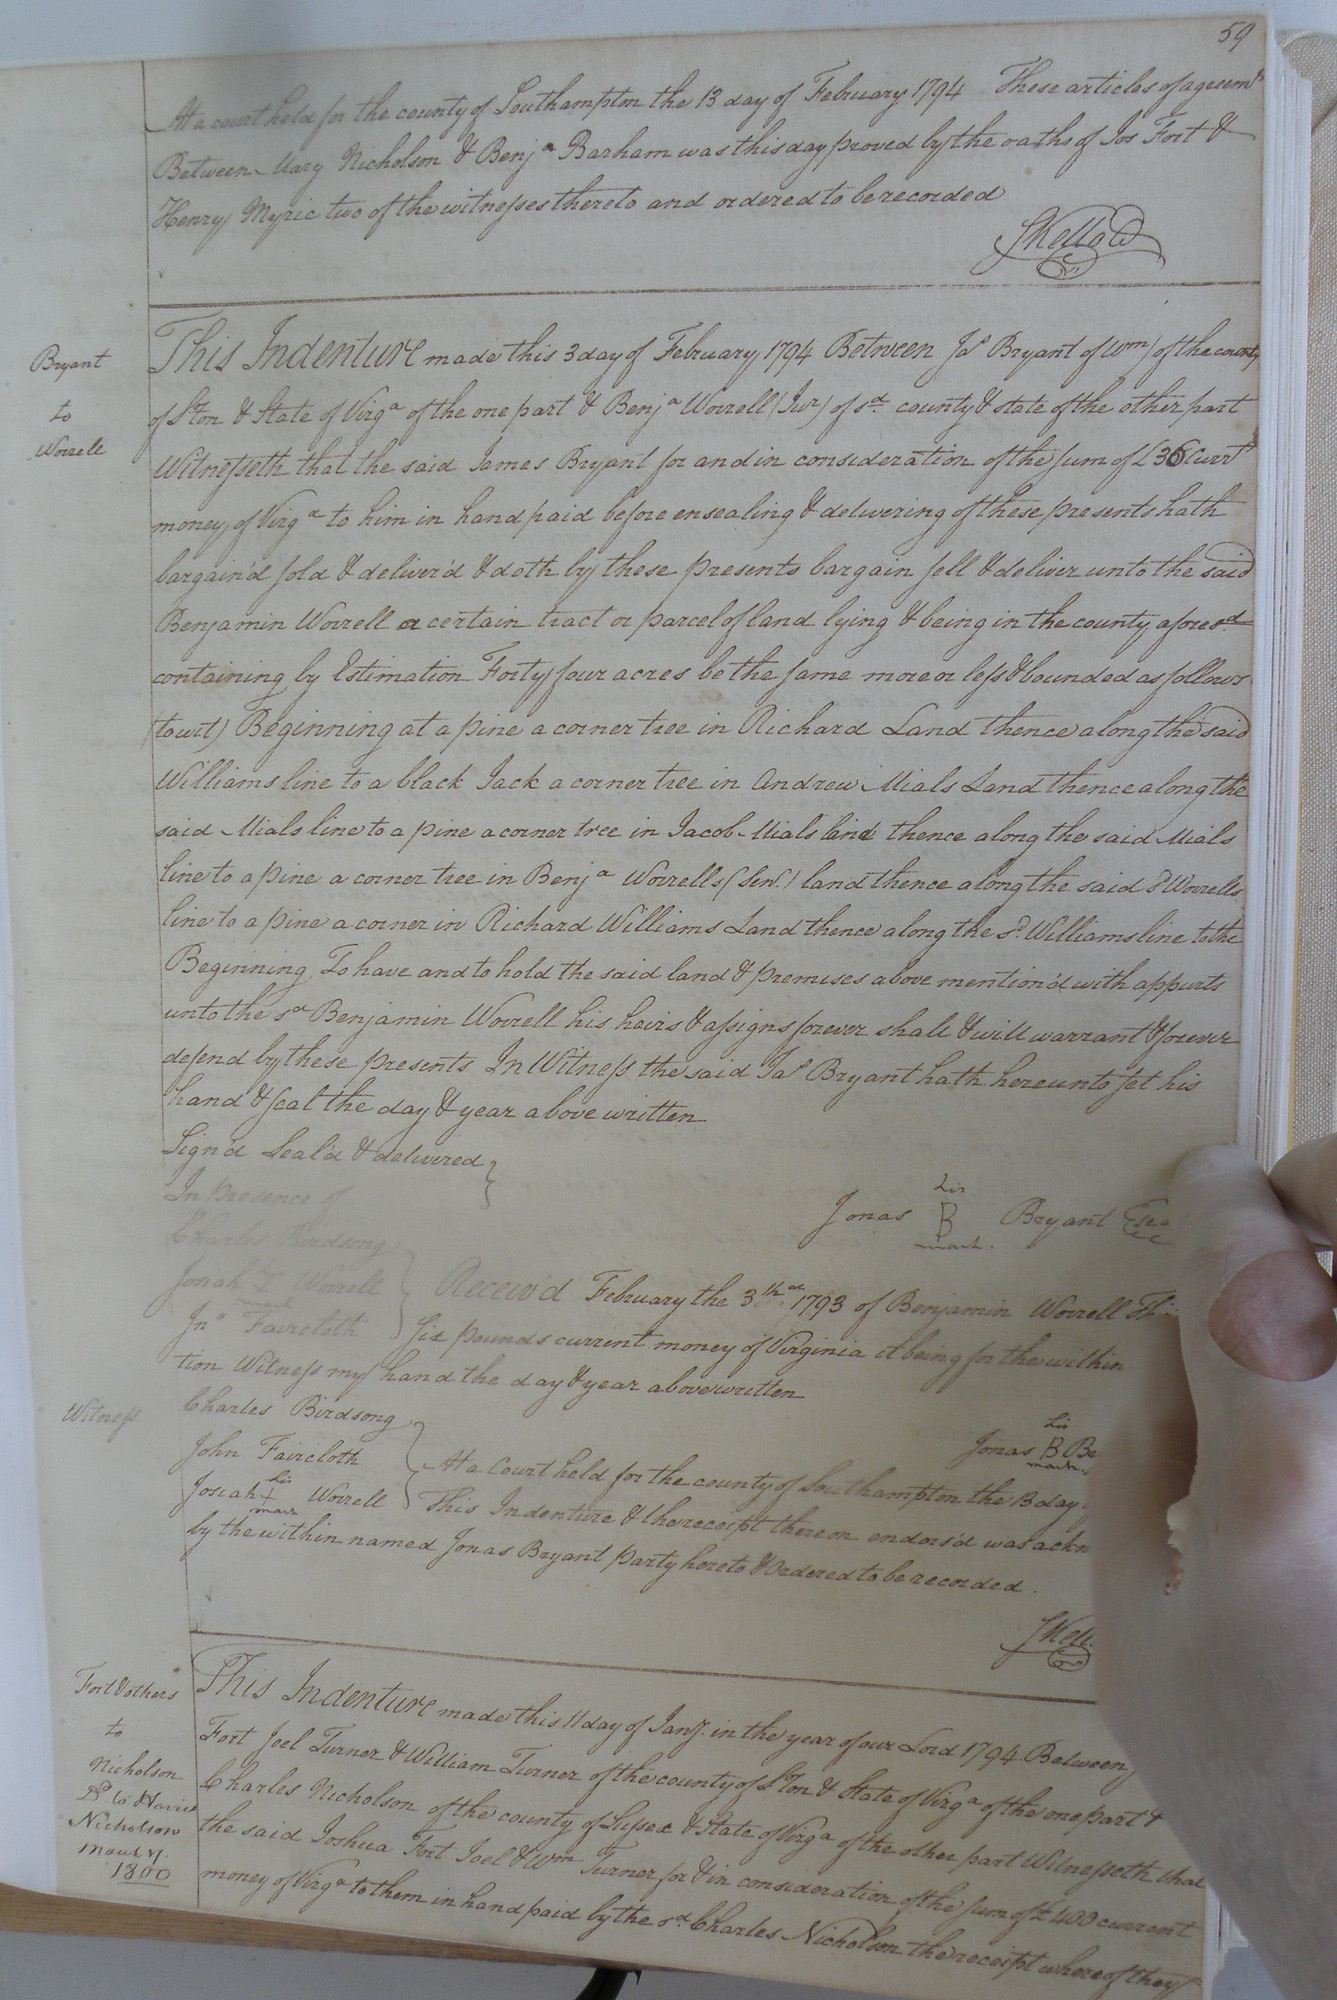 59
At a court held for the county of Southampton the 13 day of February 1794 These articles of agreemt
Between Mary Nicholson & Benja Barham was this day proved by the oaths of Jos Fort &
Henry Myric two of the witnesses thereto and ordered to be recorded
Bryant
to
Worrell
This Indenture made this 3 day of February 1794 Between Jas Bryant of Wm) of the county
of S.ton & State of Virga of the one part & Benja Worrell (Jur) of sd county & state of the other part
Witnesseth that the said James Bryant for and in consideration of the sum of £36 Currt
money of Virga to him in hand paid before ensealing & delivering of these presents hath
bargain'd sold & deliver'd & doth by these presents bargain sell & deliver unto the said
Benjamin Worrell a certain tract or parcel of land lying & being in the county aforesd
containing by Estimation Forty four acres be the same more or less & bounded as follows
(towit) Beginning at a pine a corner tree in Richard Land thence along the said
Williams line to a black Jack a corner tree in Andrew Mials Land thence along the
said Mials line to a pine a corner tree in Jacob Mials line thence along the said Mials
line to a pine a corner tree in Benja Worrells (Senr.) land thence along the said Worrells
line to a pine a corner in Richard Williams Land thence along the sd Williams line to the
Beginning To have and to hold the said land & premises above mention'd with appurts
unto the sd Benjamin Worrell his heirs & assigns forever shall & will warrant & forever
defend by these presents In Witness the said Jas Bryant hath hereunto set his
hand & seal the day & year above written
Sign'd Seal'd & delivered
In presence of
Charles Birdsong
his
Jonas B Bryant
mark
Josiah Worrell
mark
Jno Faircloth
Receiv'd February the 3th 1793 of Benjamin Worrell
Six pounds current money of Virginia it being for the within
tion Witness my hand the day & year above written
Witness
Charles Birdsong
John Faircloth
his
Josiah + Worrell
mark
his
Jonas B
mark
At a Court held for the county of Southampton the 13 day
This Indenture & the receipt thereon endors'd was
by the within named Jonas Bryant party hereto & Ordered to be recorded.
Fort & others
to
Nicholson
Nicholson
1800
This Indenture made this 11 day of Jany. in the year of our Lord 1794 Between
Fort Joel Turner & William Turner of the county of S.ton & State of Virga of the one part &
Charles Nicholson of the county of Sussex & State of Virga of the other part Witnesseth that
the said Joshua Fort Joel & Wm Turner for & in consideration of the sum of £ 400 current
money of Virga to them in hand paid by the sd Charles Nicholson the receipt whereof they